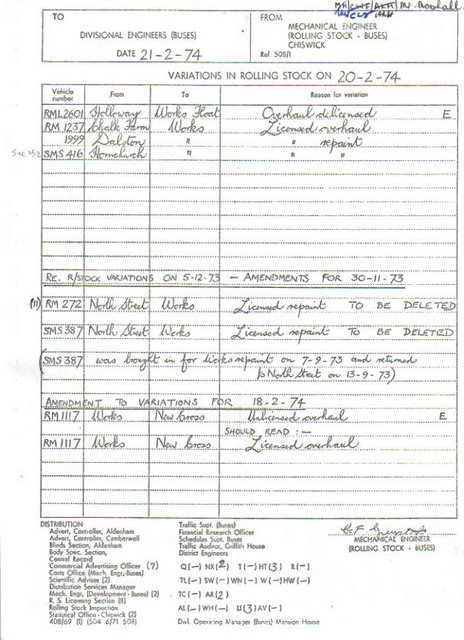 TO
DIVISIONAL ENGINEERS (BUSES)
DATE 21-2-74
FROM
MECHANICAL ENGINEER
(ROLLING STOCK - BUSES)
CHISWICK
Ref. 508/1
VARIATIONS IN ROLLING STOCK ON 20-2-74
Vehicle number From To Reason for variation
RML2601 Holloway Works Float Overhaul delicensed E
RM 1237 Chalk Farm Works Licensed overhaul
1999 Dalston " " repaint
SMS 416 Hornchurch " " "
RE. R/STOCK VARIATIONS ON 5-12-73 - AMENDMENTS FOR 30-11-73
(11) RM 272 North Street Works Licensed repaint TO BE DELETED
SMS 387 North Street Works Licensed repaint TO BE DELETED
(SMS 387 was bought in for Works repaint on 7-9-73 and returned
to North Street on 13-9-73)
AMENDMENT TO VARIATIONS FOR 18-2-74
RM 1117 Works New Cross Unlicensed overhaul E
SHOULD READ :-
RM 1117 Works New Cross Licensed overhaul
DISTRIBUTION
Advert. Controller, Aldenham
Advert. Controller, Camberwell
Blinds Section, Aldenham
Body Spec. Section,
Central Record
Commercial Advertising Officer (7)
Costs Office (Mech. Engr.-Buses)
Scientific Adviser (2)
Distribution Services Manager
Mech. Engr. (Development - Buses) (2)
R. S. Licensing Section (8)
Rolling Stock Inspection
Statistical Office - Chiswick (2)
408/69 (1) (504 6/71 508)
Traffic Supt. (Buses)
Financial Research Officer
Schedules Supt. Buses
Traffic Auditor, Griffith House
District Engineers
Q(-) NX(2) T(-) HT(3) R(-)
TL(-) SW(-) WN(-) W(-) HW(-)
TC(-) AR(2)
AL(-) WH(3) U(3) AV(-)
Divl. Operating Manager (Buses) Mansion House
MECHANICAL ENGINEER
(ROLLING STOCK - BUSES)